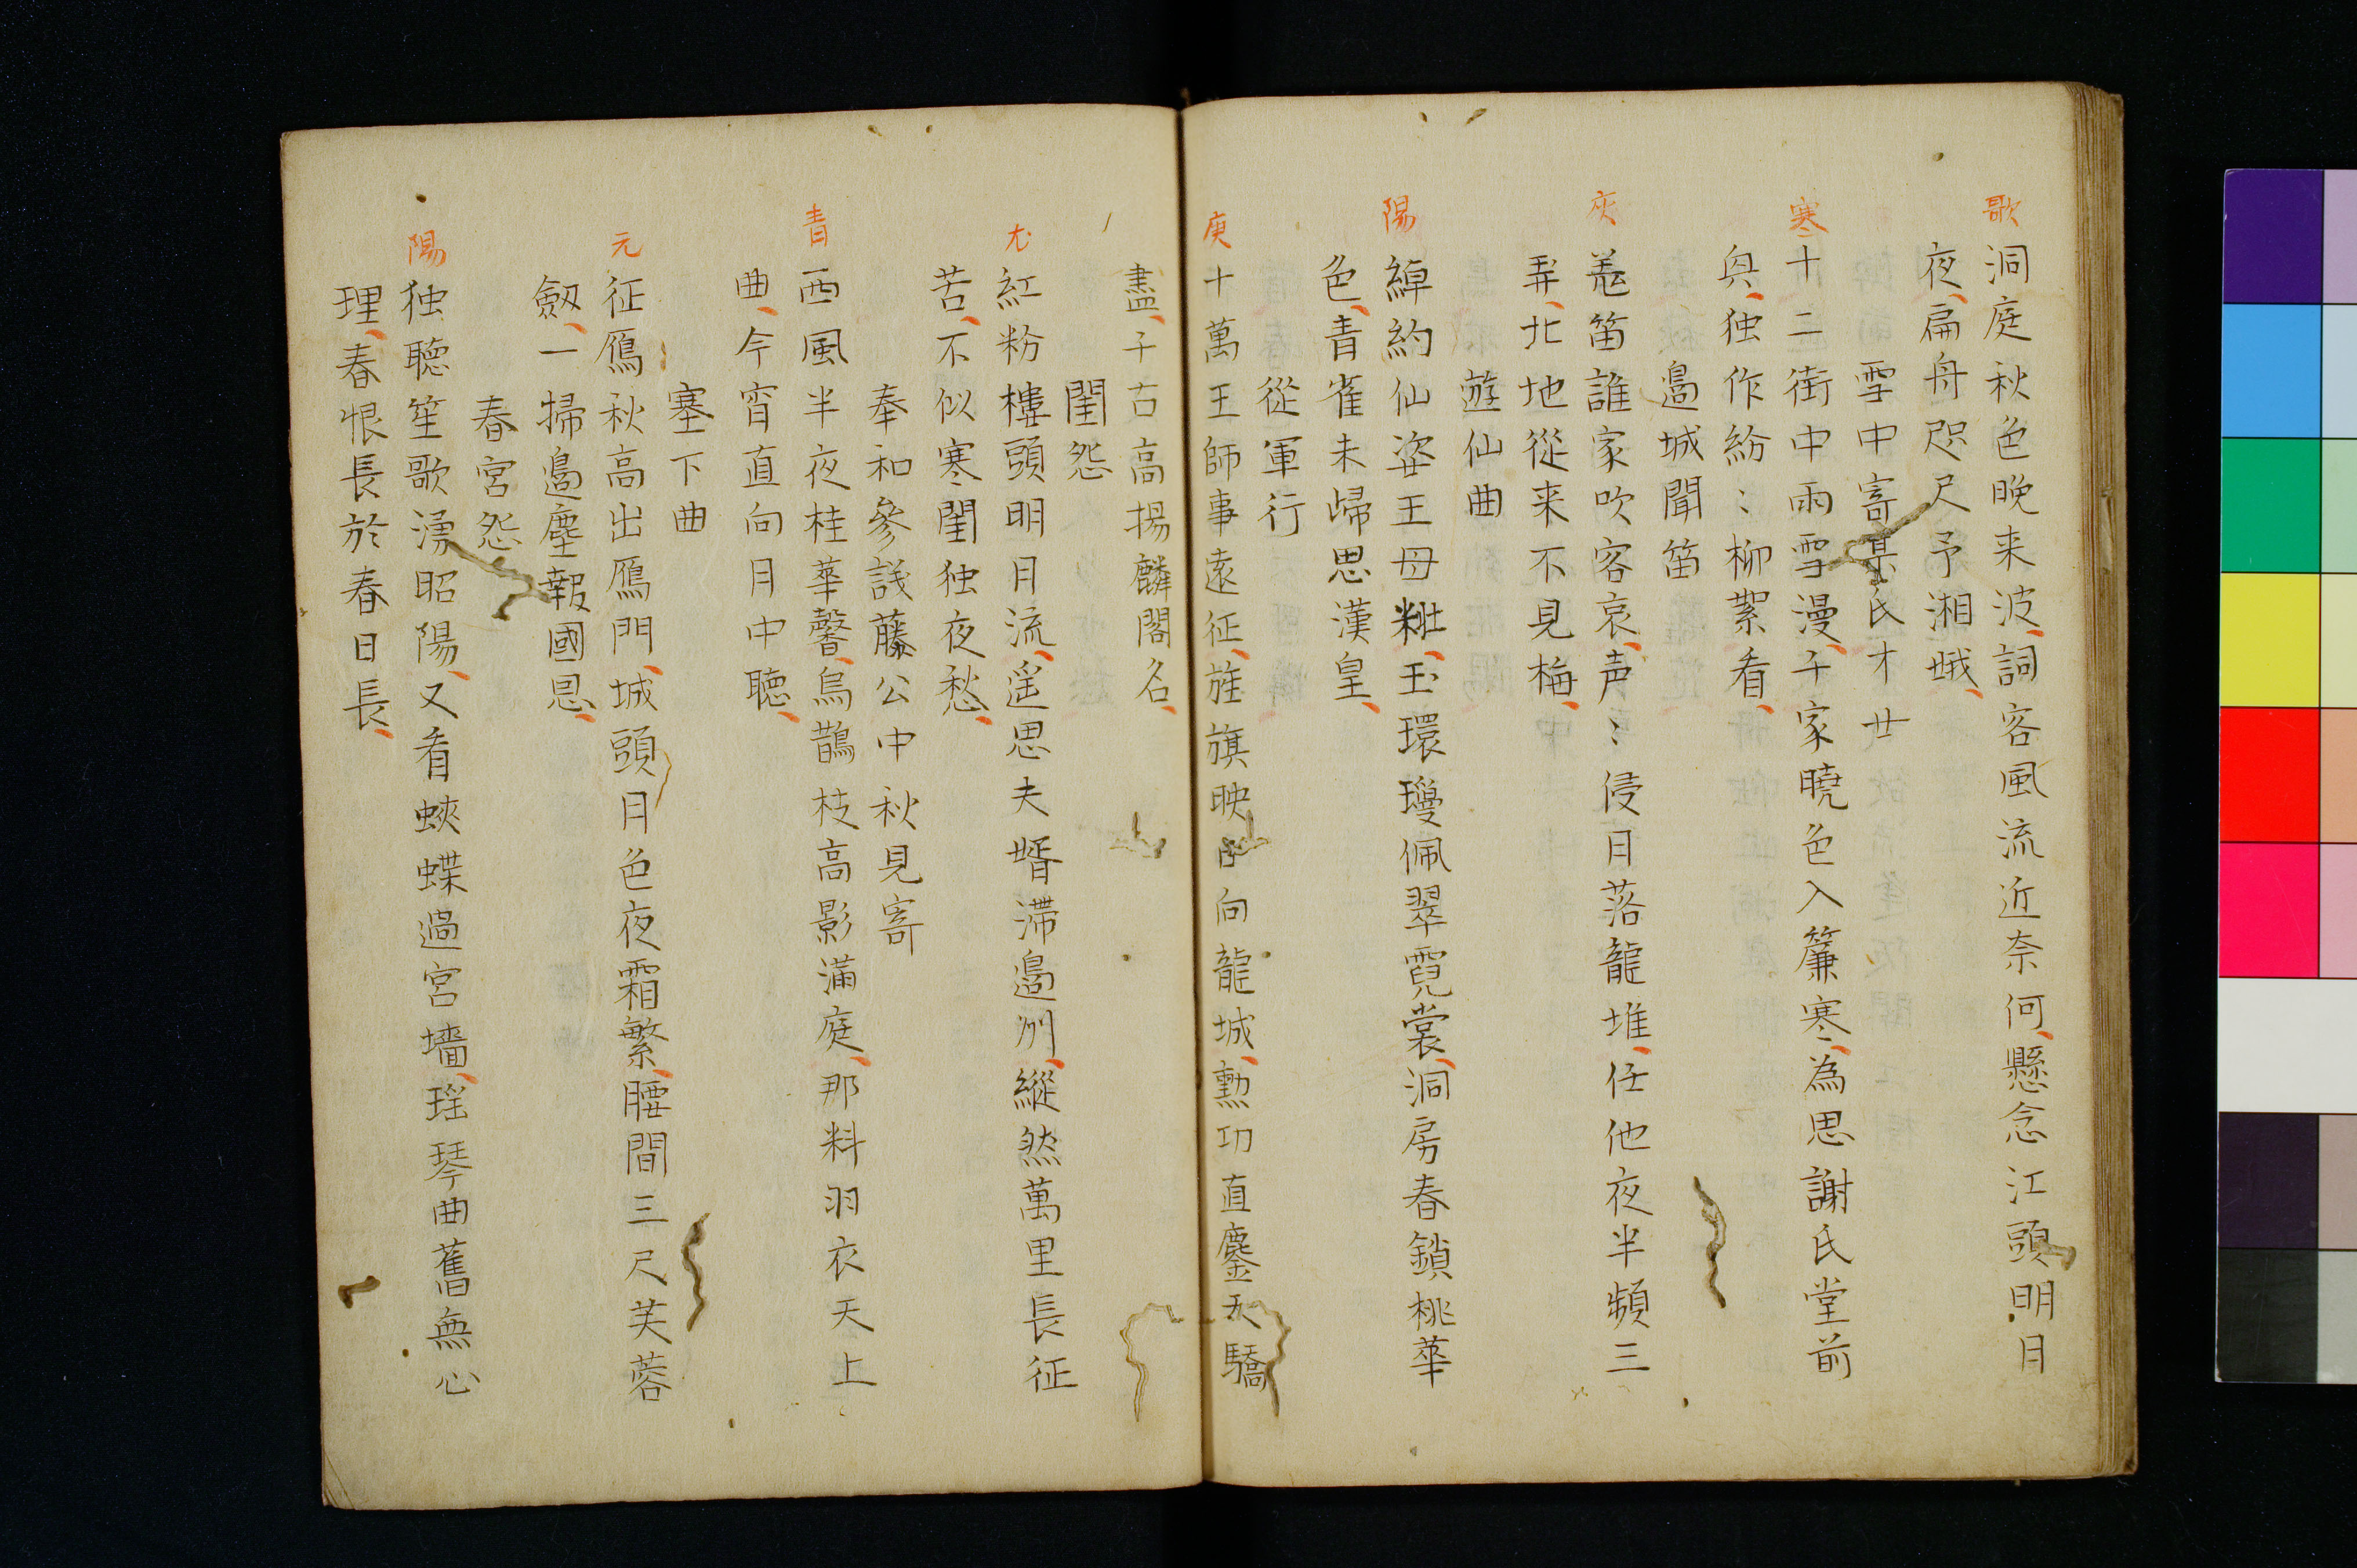 歌
洞庭秋色晩来波詞客風流近奈何懸念江頭明月
夜扁舟咫尺予湘娥
雪中寄某氏才廿
寒
十二街中雨雪漫千家曉色入簾寒為思謝氏堂前
興独作紛〻柳絮看
邉城聞笛
灰
羗笛誰家吹客哀声〻侵月落龍堆任他夜半頻三
弄北地從来不見梅
遊仙曲
陽
綽約仙姿王母粧玉環瓊佩翠霓裳洞房春鎖桃華
色青雀未歸思漢皇
從軍行
庚
十萬王師事遠征旌旗映日向龍城勲功直鏖天驕
盡千古高揚麟閣名
閨怨
尤
紅粉樓頭明月流遥思夫婿滞邉州縱然萬里長征
苦不似寒閨独夜愁
奉和參議藤公中秋見寄
青
西風半夜桂華馨烏鵲枝高影滿庭那料羽衣天上
曲今宵直向月中聴
塞下曲
元
征鴈秋高出鴈門城頭月色夜霜繁腰間三尺芙蓉
劔一掃邉塵報國恩
春宮怨
陽
独聴笙歌湧昭陽又看蛺蝶過宮墻瑶琴曲舊無心
理春恨長於春日長